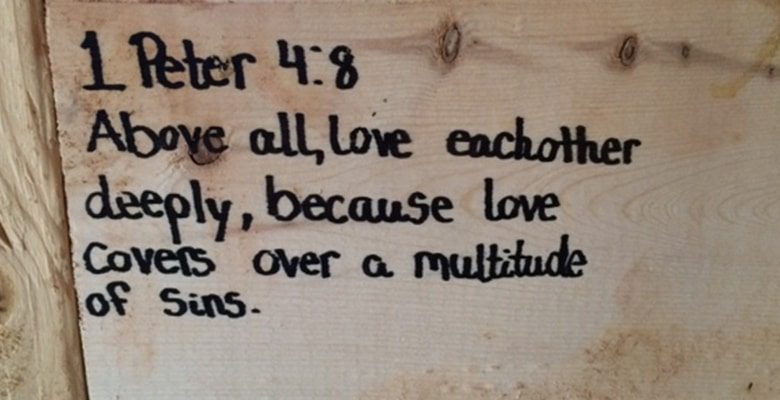 1 Peter 4:8
Above all, love eachother
deeply, because love
covers over a multitude
of sins.